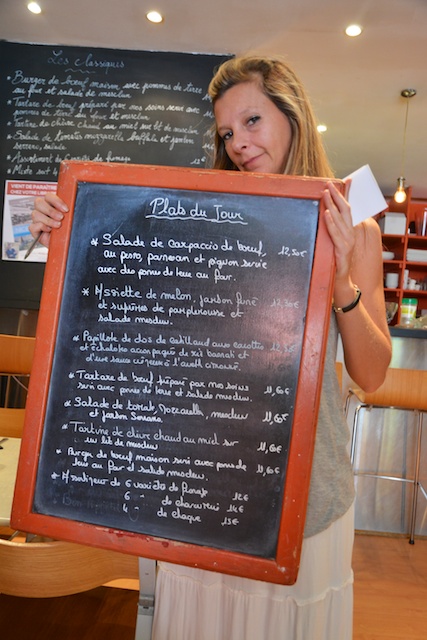 Les classiques
* Burger de bœuf maison avec pommes de terre
au four et salade de mesclun
* Tartare de bœuf préparé par nos soins servi avec
pommes de terre au four et mesclun
Tartine de chèvre chaud au miel sur lit de mesclun
Salade de tomates mozzarella buffala et jambon
serrano, salade
* Assortiment de fromage
VIENT DE PARAÎTRE
CHEZ VOTRE LIBRAIRE
Plats du Jour
* Salade de carpaccio de bœuf, 12,50€
au poro, parmesan et pignon servie
avec des pomes de terre au four.
* Assiette de melon, jambon fumé 12,50€
et suprêmes de pamplemousse et
salade mesclun.
* Papillote de dos de cabillaud aux carottes
et échalotes accompagnée de riz basmati et
d'une sauce crémeuse à l'aneth
* Tartare de bœuf préparé par nos soins
servi avec pomes de terre et salade mesclun. 11,60€
* Salade de tomate, Mozzarella, mesclun 11,60€
et jambon Serrano.
* Tartine de chèvre chaud au miel sur 11,60€
un lit de mesclun
* Burger de bœuf maison servi avec pomes de
terre au four et salade mesclun. 11,60€
6 variétés de 12€
6 " de 14€
4 " de chaque 15€